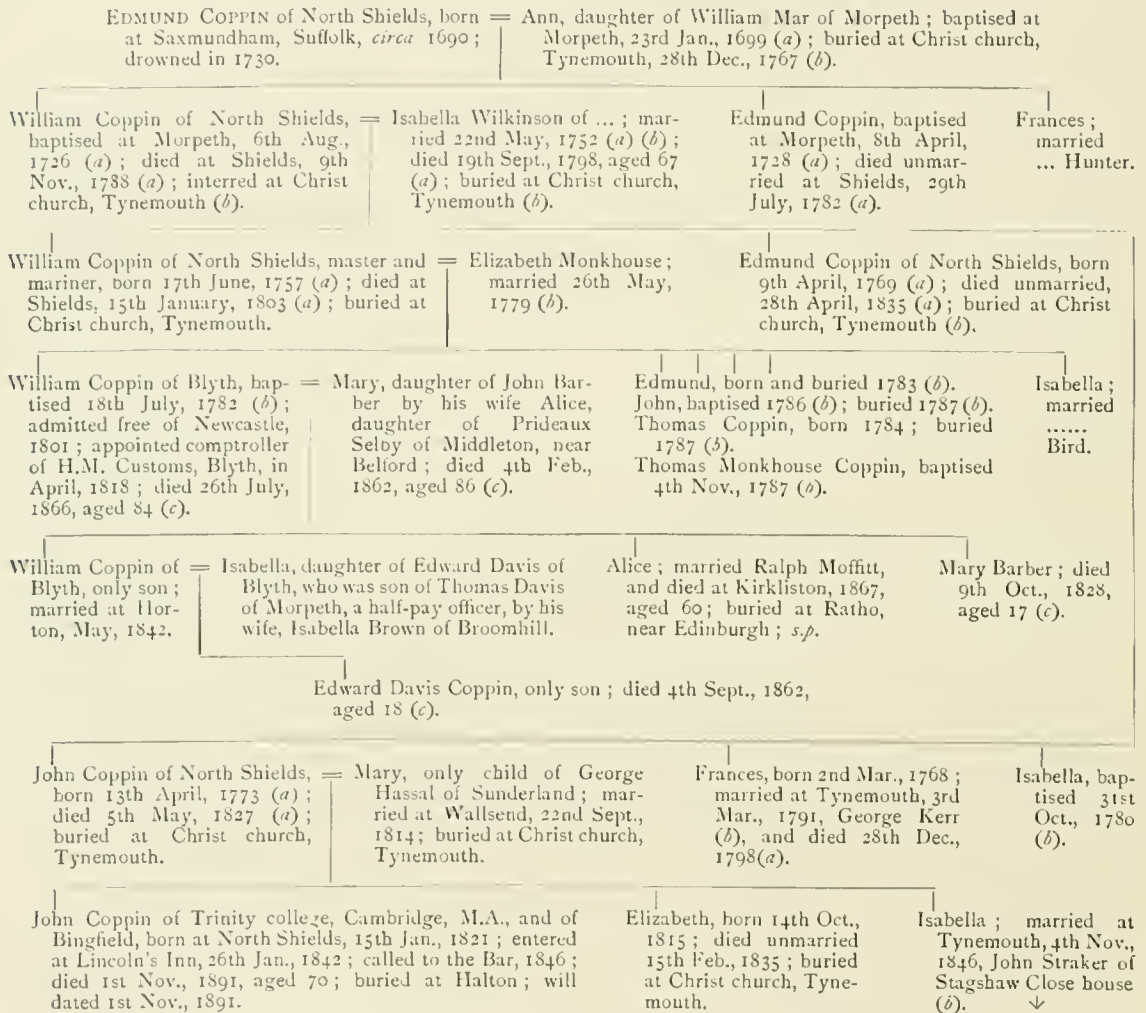 EDMUND COPPIN of North Shields, born
at Saxmundham, Suffolk, circa 1690 ;
drowned in 1730.
=
Ann, daughter of William Mar of Morpeth ; baptised at
Morpeth, 23rd Jan., 1699 (a) ; buried at Christ church,
Tynemouth, 28th Dec., 1767 (b).
William Coppin of North Shields,
baptised at Morpeth, 6th Aug.,
1726 (a) ; died at Shields, 9th
Nov., 1788 (a) ; interred at Christ
church, Tynemouth (b).
=
Isabella Wilkinson of ... ; mar-
ried 22nd May, 1752 (a) (b) ;
died 19th Sept., 1798, aged 67
(a) ; buried at Christ church,
Tynemouth (b).
Edmund Coppin, baptised
at Morpeth, 8th April,
1728 (a) ; died unmar-
ried at Shields, 29th
July, 1782 (a).
Frances ;
married
... Hunter.
William Coppin of North Shields, master and
mariner, born 17th June, 1757 (a) ; died at
Shields, 15th January, 1803 (a) ; buried at
Christ church, Tynemouth.
=
Elizabeth Monkhouse ;
married 26th May,
1779 (b).
Edmund Coppin of North Shields, born
9th April, 1769 (a) ; died unmarried,
28th April, 1835 (a) ; buried at Christ
church, Tynemouth (b).
William Coppin of Blyth, bap-
tised 18th July, 1782 (b) ;
admitted free of Newcastle,
1801 ; appointed comptroller
of H.M. Customs, Blyth, in
April, 1818 ; died 26th July,
1866, aged 84 (c).
=
Mary, daughter of John Bar-
ber by his wife Alice,
daughter of Prideaux
Selby of Middleton, near
Belford ; died 4th Feb.,
1862, aged 86 (c).
Edmund, born and buried 1783 (b).
John, baptised 1786 (b) ; buried 1787 (b).
Thomas Coppin, born 1784 ; buried
1787 (b).
Thomas Monkhouse Coppin, baptised
4th Nov., 1787 (b).
Isabella ;
married
......
Bird.
William Coppin of
Blyth, only son ;
married at Hor-
ton, May, 1842.
=
Isabella, daughter of Edward Davis of
Blyth, who was son of Thomas Davis
of Morpeth, a half-pay officer, by his
wife, Isabella Brown of Broomhill.
Alice ; married Ralph Moffitt,
and died at Kirkliston, 1867,
aged 60 ; buried at Ratho,
near Edinburgh ; s.p.
Mary Barber ; died
9th Oct., 1828,
aged 17 (c).
Edward Davis Coppin, only son ; died 4th Sept., 1862,
aged 18 (c).
John Coppin of North Shields,
born 13th April, 1773 (a) ;
died 5th May, 1827 (a) ;
buried at Christ church,
Tynemouth.
=
Mary, only child of George
Hassal of Sunderland ; mar-
ried at Wallsend, 22nd Sept.,
1814 ; buried at Christ church,
Tynemouth.
Frances, born 2nd Mar., 1768 ;
married at Tynemouth, 3rd
Mar., 1791, George Kerr
(b), and died 28th Dec.,
1798(a).
Isabella, bap-
tised 31st
Oct., 1780
(b).
John Coppin of Trinity college, Cambridge, M.A., and of
Bingfield, born at North Shields, 15th Jan., 1821 ; entered
at Lincoln's Inn, 26th Jan., 1842 ; called to the Bar, 1846 ;
died 1st Nov., 1891, aged 70 ; buried at Halton ; will
dated 1st Nov., 1891.
Elizabeth, born 14th Oct.,
1815 ; died unmarried
15th Feb., 1835 ; buried
at Christ church, Tyne-
mouth.
Isabella ; married at
Tynemouth, 4th Nov.,
1846, John Straker of
Stagshaw Close house
(b). ↓